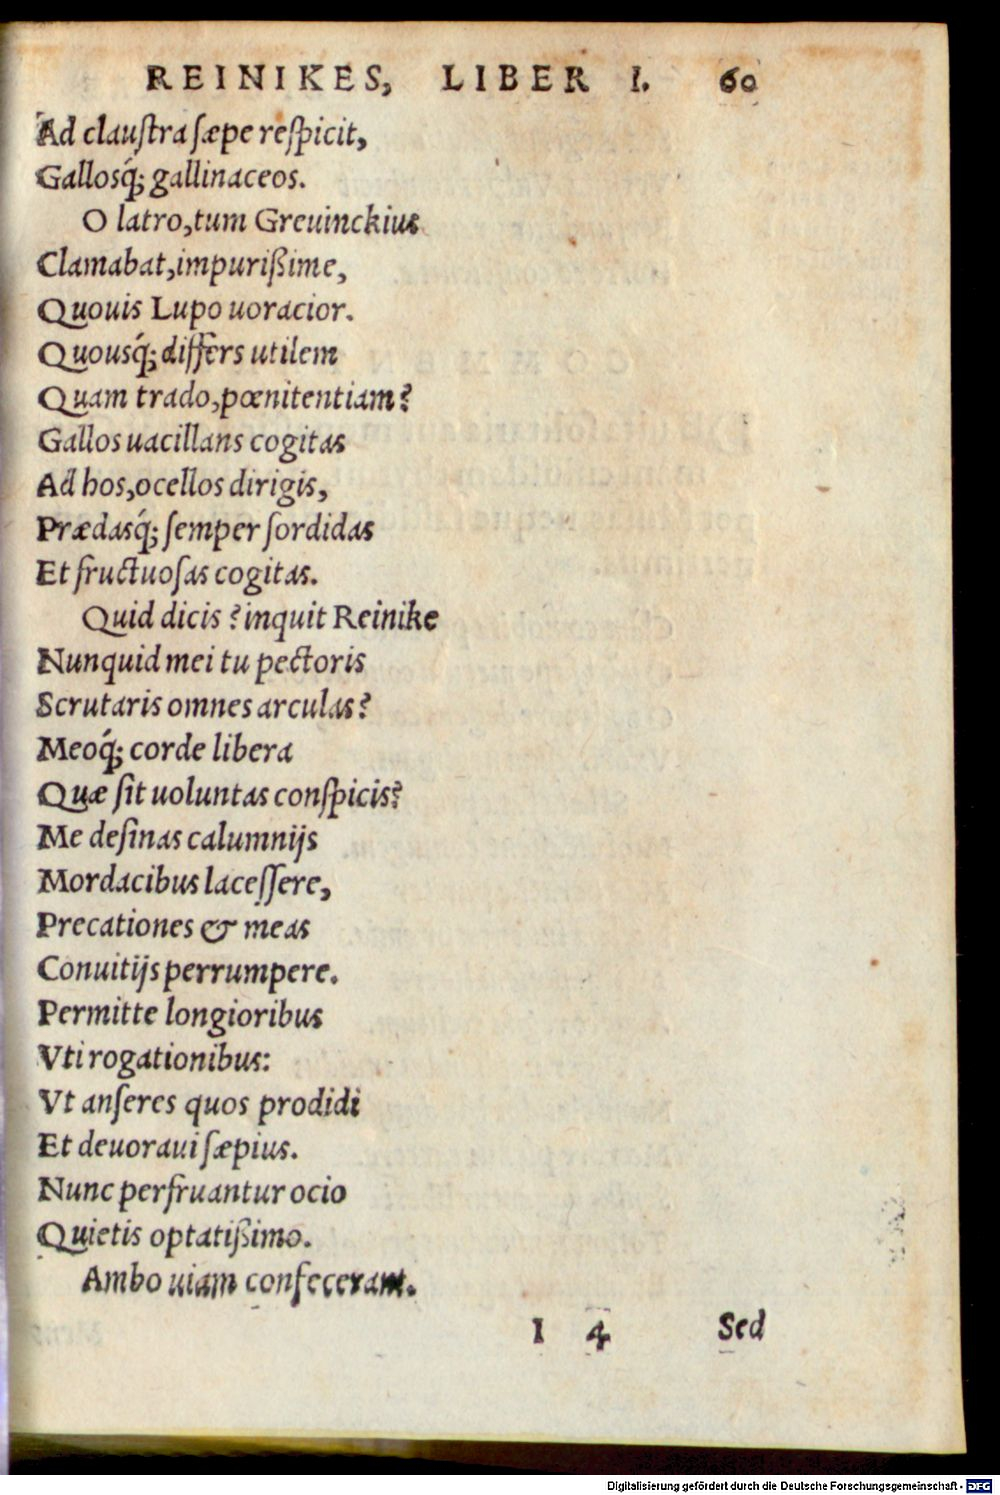 REINIKES, LIBER I. 60
Ad clauſtra ſæpe reſpicit,
Gallosq́; gallinaceos.
O latro,tum Greuinckius
Clamabat,impurißime,
Quouis Lupo uoracior.
Quousq́; differs utilem
Quam trado,pœnitentiam?
Gallos uacillans cogitas
Ad hos,ocellos dirigis,
Prædasq́; ſemper ſordidas
Et fructuoſas cogitas.
Quid dicis ? inquit Reinike
Nunquid mei tu pectoris
Scrutaris omnes arculas?
Meoq́; corde libera
Quæ ſit uoluntas conſpicis?
Me deſinas calumnijs
Mordacibus laceſſere,
Precationes & meas
Conuitijs perrumpere.
Permitte longioribus
Vti rogationibus:
Vt anſeres quos prodidi
Et deuoraui ſæpius.
Nunc perfruantur ocio
Quietis optatißimo.
Ambo uiam confecerant.
I 4 Sed
Digitalisierung gefördert durch die Deutsche Forschungsgemeinschaft - DFG